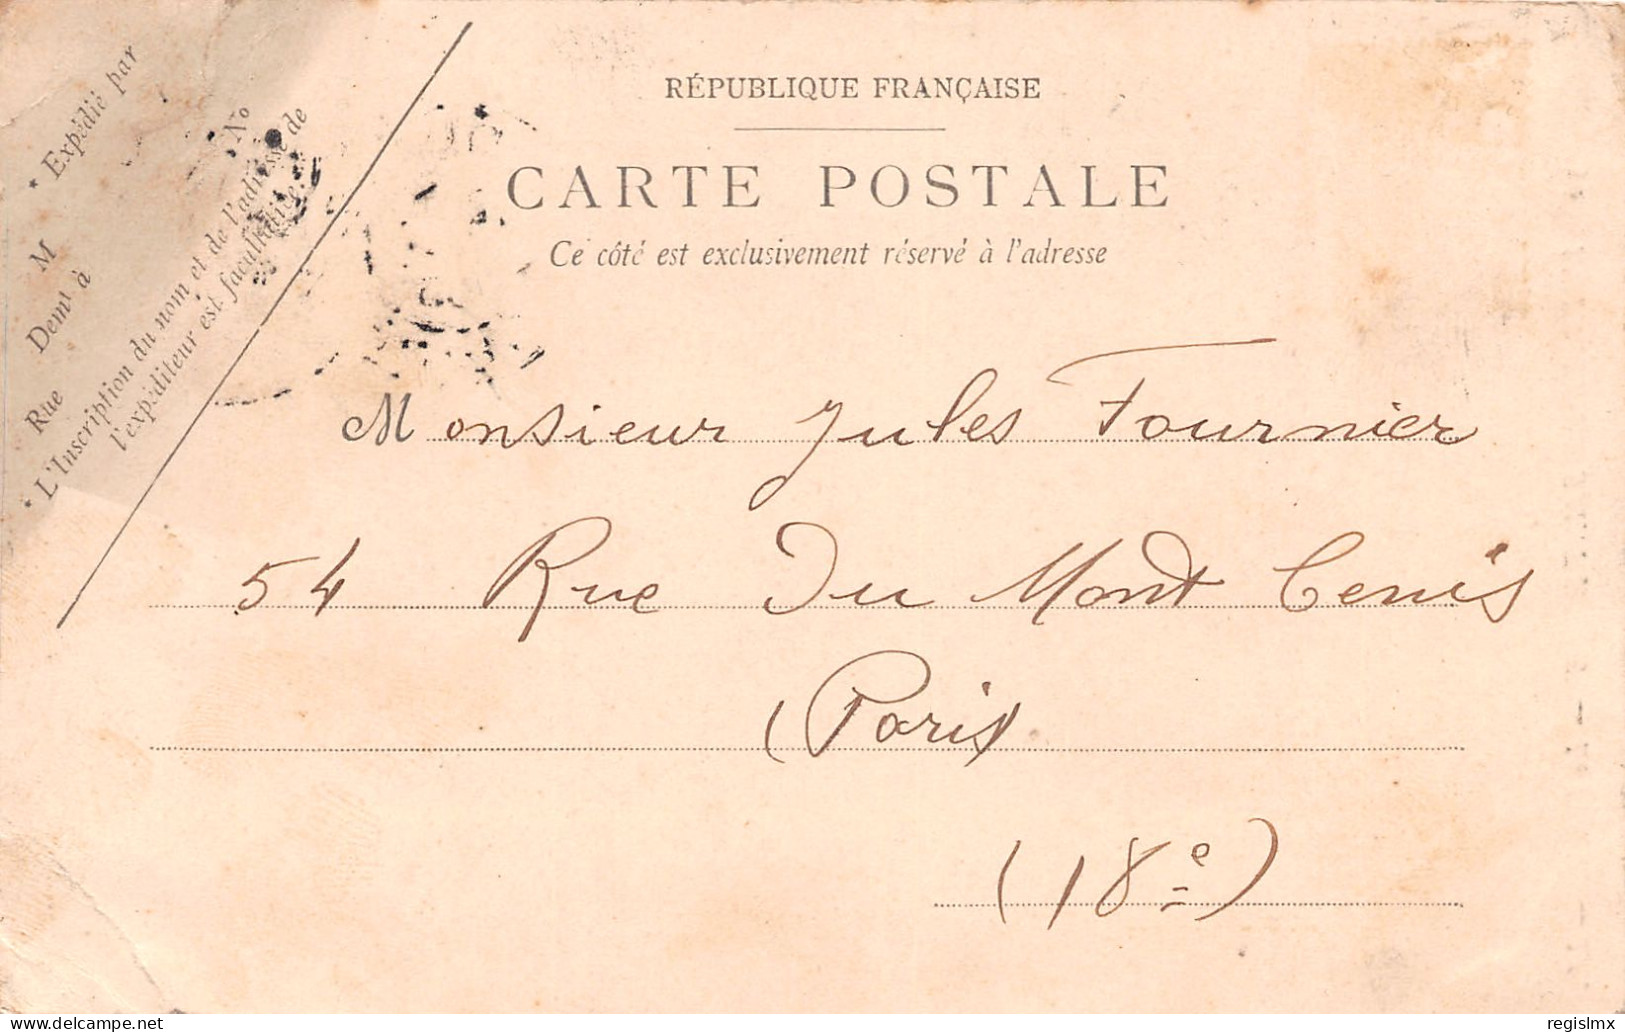 RÉPUBLIQUE FRANÇAISE
CARTE POSTALE
Ce côté est exclusivement réservé à l'adresse
* Expédié par
M
Demt à
Rue
No
* L'Inscription du nom et de l'adresse de
l'expéditeur est facultative.
Monsieur Jules Fournier
54 Rue Du Mont Cenis
(Paris)
(18e)
delcampe.net
regislmx